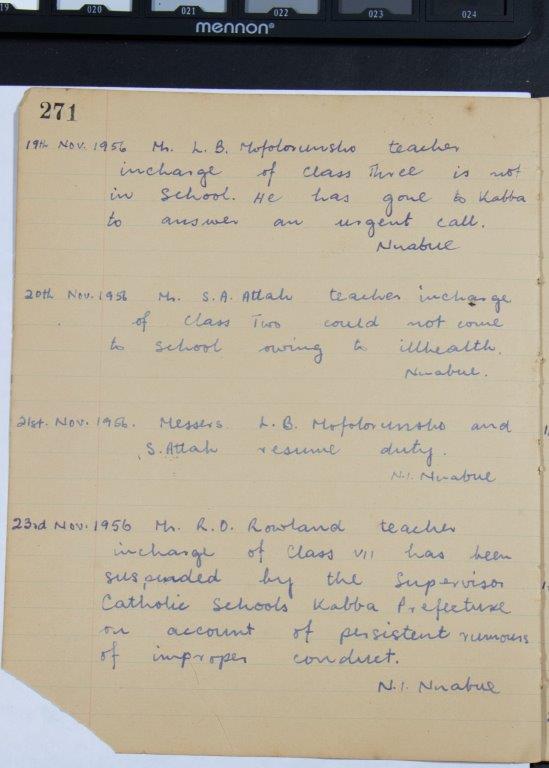 19 020 021 022 023 024
mennon®
271
19th Nov. 1956 Mr. L. B. Mofolorunsho teacher
incharge of Class Three is not
in School. He has gone to Kabba
to answer an urgent call.
Nwabue
20th Nov. 1956 Mr. S. A. Attah teacher incharge
of Class Two could not come
to School owing to illhealth.
Nwabue.
21st. Nov. 1956. Messers. L. B. Mofolorunsho and
S. Attah resume duty.
N. I. Nwabue
23rd Nov. 1956 Mr. R. O. Rowland teacher
incharge of Class VII has been
suspended by the Supervisor
Catholic Schools Kabba Prefecture
on account of persistent rumours
of improper conduct.
N. I. Nwabue